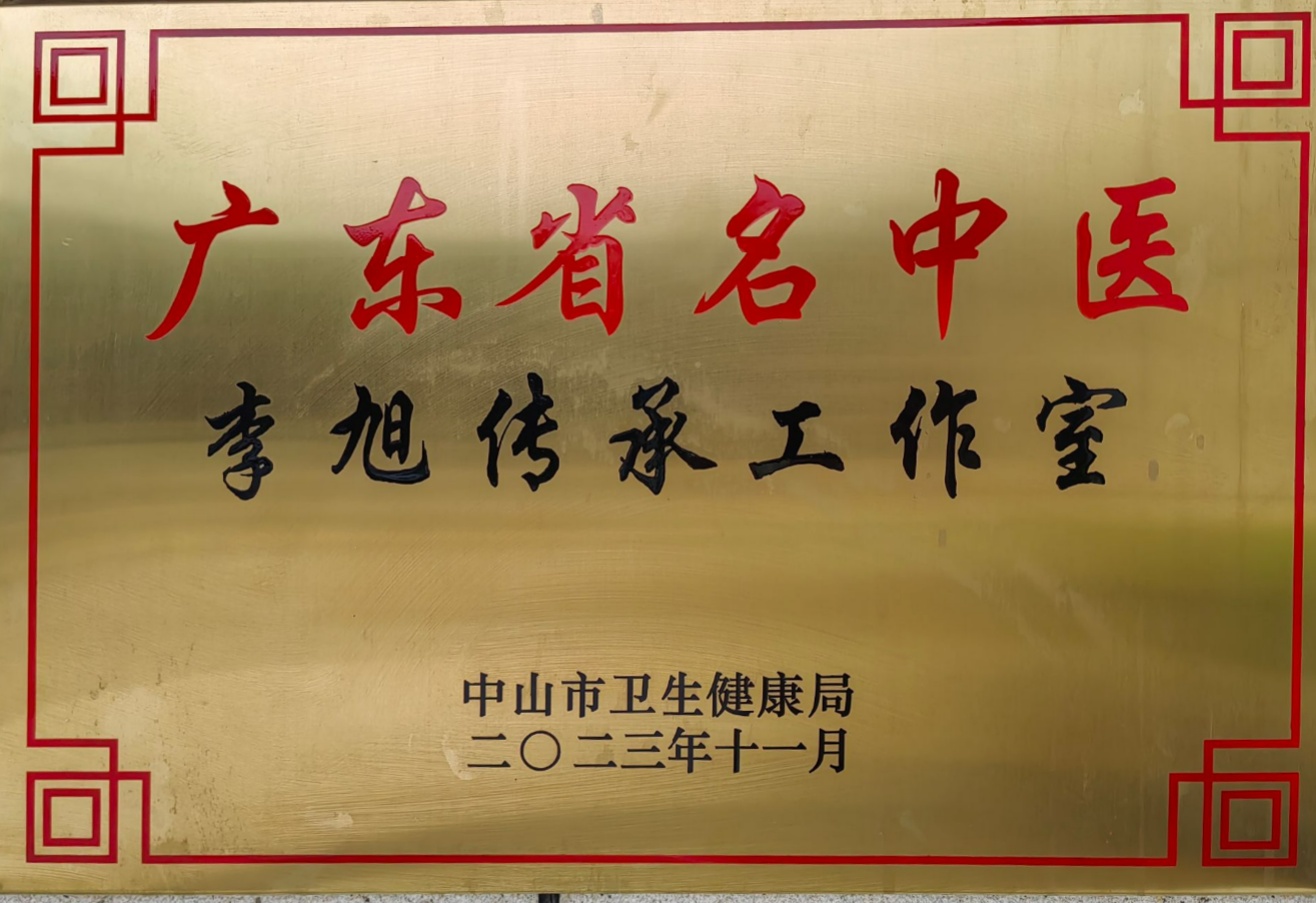 广东省名中医
李旭传承工作室
中山市卫生健康局
二〇二三年十一月